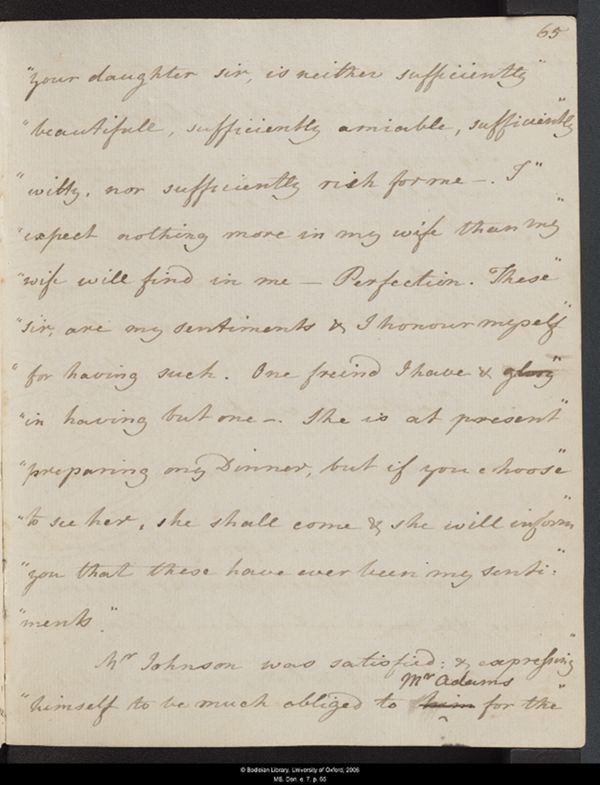 65
"your daughter sir, is neither sufficiently"
"beautifull, sufficiently amiable, sufficiently"
"witty, nor sufficiently rich for me —. I"
"expect nothing more in my wife than my"
"wife will find in me — Perfection. These"
"sir, are my sentiments & I honour myself"
"for having such. One freind I have & glory"
"in having but one —. She is at present"
"preparing my Dinner, but if you choose"
"to see her, she shall come & she will inform"
"you that these have ever been my senti:"
"ments."
Mr Johnson was satisfied: & expressing"
Mr Adams
"himself to be much obliged to him for the"
© Bodleian Library, University of Oxford, 2006
MS. Don. e. 7, p. 65